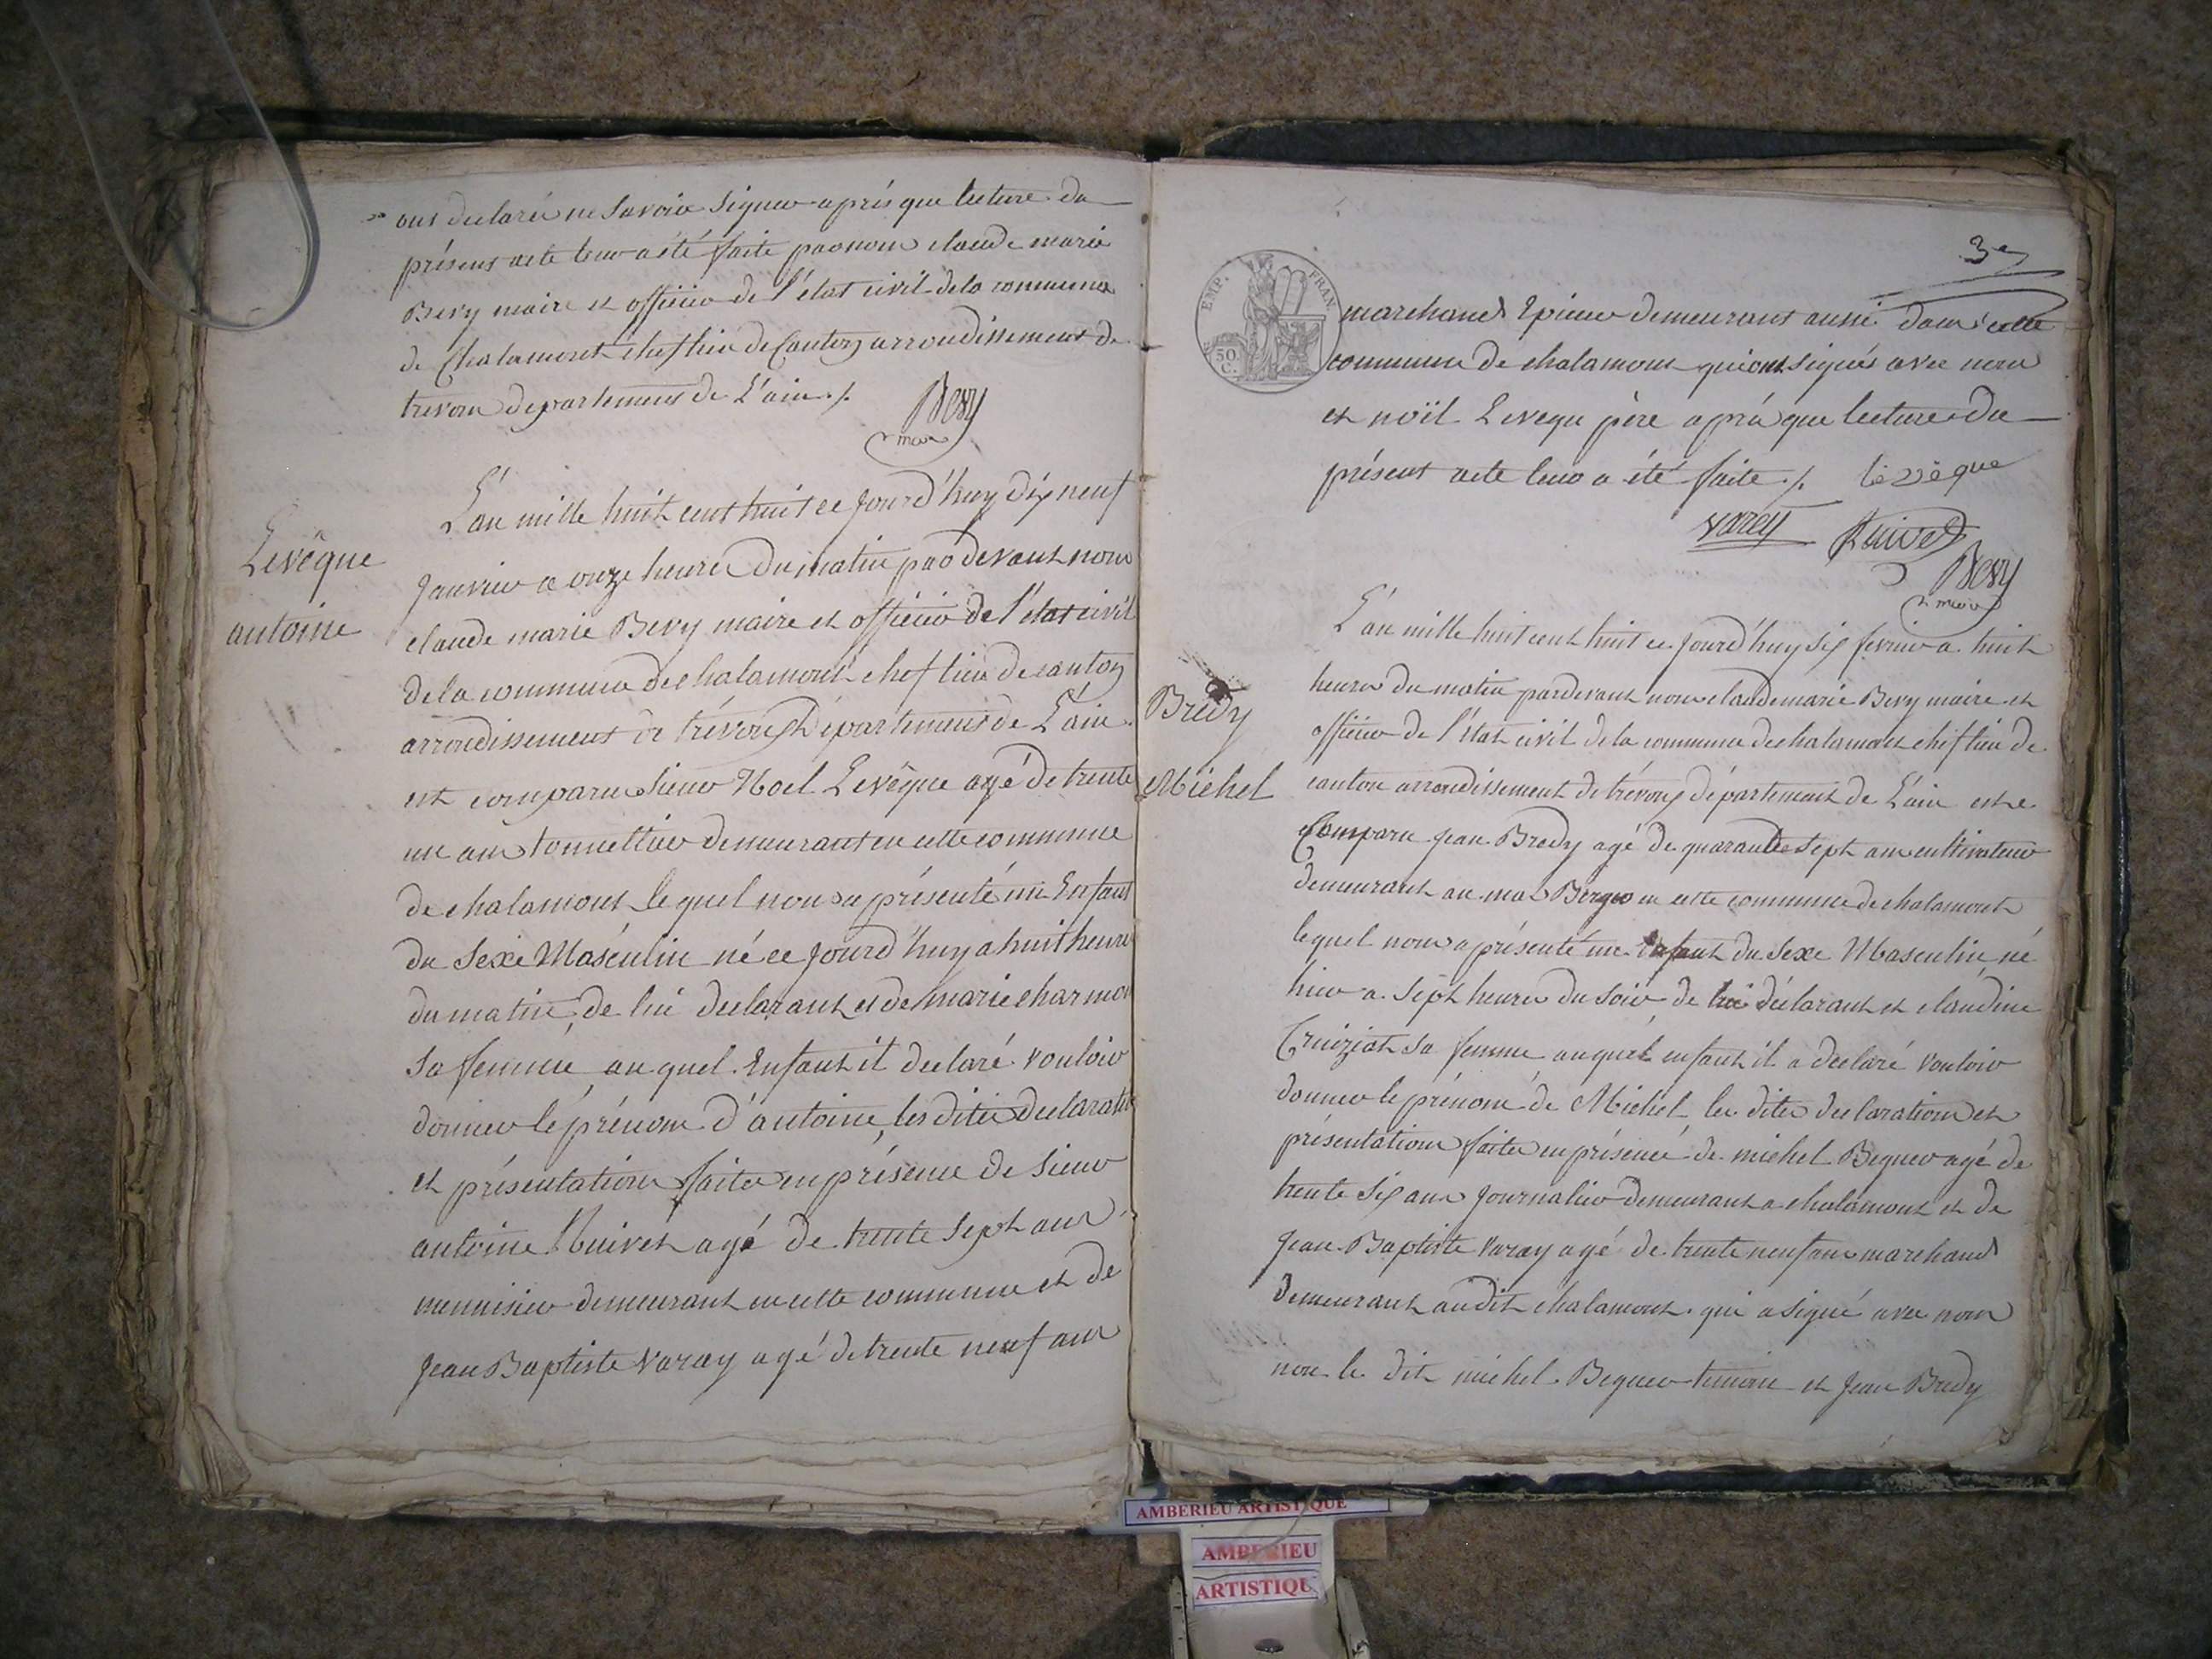 ont declaré ne Savoir Signer après que lecture du
présent acte leur a été faite par nous claude marie
Bevy maire et officier de l'état civil de la commune
de Chalamont chef lieu de Canton arrondissement de
trevoux departement de L'ain ./.
Bevy
maire
Levêque
antoine
L'an mille huit cent huit ce Jourd'huy dix neuf
Janvier a onze heures du matin par devant nous
claude marie Bevy maire et officier de l'état civil
de la commune de chalamont chef lieu de canton
arrondissement de trévoux département de L'ain
est comparu Sieur Noel Levêque agé de trente
un ans tonnellier demeurant en cette commune
de chalamont lequel nous a présenté un Enfant
du Sexe Masculin né ce Jourd'huy a huit heures
du matin, de lui declarant et de marie charmon
Sa femme, auquel Enfant il declaré vouloir
donner le prénom d'antoine, les dites declaration
et présentation faites en présence de Sieur
antoine Ruivet agé de trente Sept ans
menuisier demeurant en cette commune et de
Jean Baptiste Varay agé de trente neuf ans
3e
EMP. FRAN
50.
C.
marchand Epicier demeurant aussi dans cette
commune de chalamont qui ont signés avec nous
et noël Leveque père après que lecture du
présent acte leur a été faite ./. levèque
varay Ruivet
Bevy
maire
Bredy
Michel
L'an mille huit cent huit ce Jourd'huy Six fevrier a huit
heures du matin pardevant nous claude marie Bevy maire et
officier de l'état civil de la commune de chalamont chef lieu de
canton arrondissement de trévoux département de L'ain est
Comparu Jean Bredy agé de quarante Sept ans cultivateur
demeurant au mas Berger en cette commune de chalamont
lequel nous a présenté un Enfant du Sexe Masculin né
hier a Sept heures du Soir, de lui déclarant et claudine
Cruiziat Sa femme auquel enfant il a declaré vouloir
donner le prénom de Michel les dites declaration et
présentation faites en présence de michel Bequer agé de
trente Six ans Journalier demeurant a chalamont et de
Jean Baptiste Varay agé de trente neuf ans marchand
Demeurant audit chalamont qui a signé avec nous
non le dit michel Bequer temoin et Jean Bredy
AMBERIEU ARTISTIQUE
AMBERIEU
ARTISTIQU